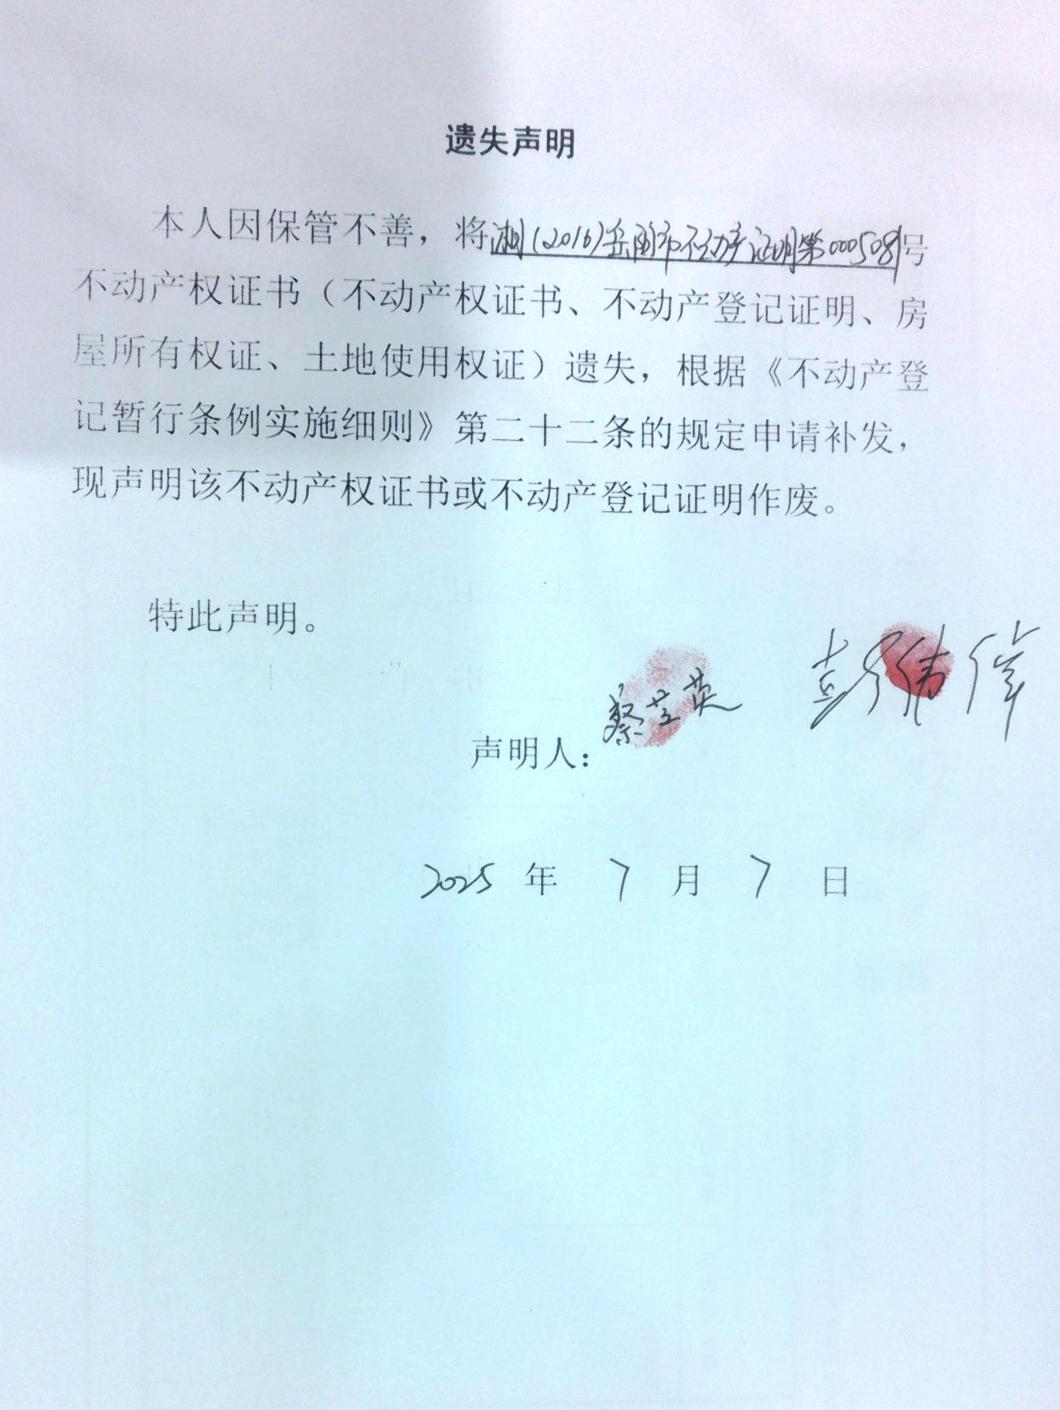 遗失声明
本人因保管不善，将湘(2016)岳阳市不动产证明第0005081号
不动产权证书（不动产权证书、不动产登记证明、房
屋所有权证、土地使用权证）遗失，根据《不动产登
记暂行条例实施细则》第二十二条的规定申请补发，
现声明该不动产权证书或不动产登记证明作废。
特此声明。
声明人：蔡芝英 彭伟
2025 年 7 月 7 日